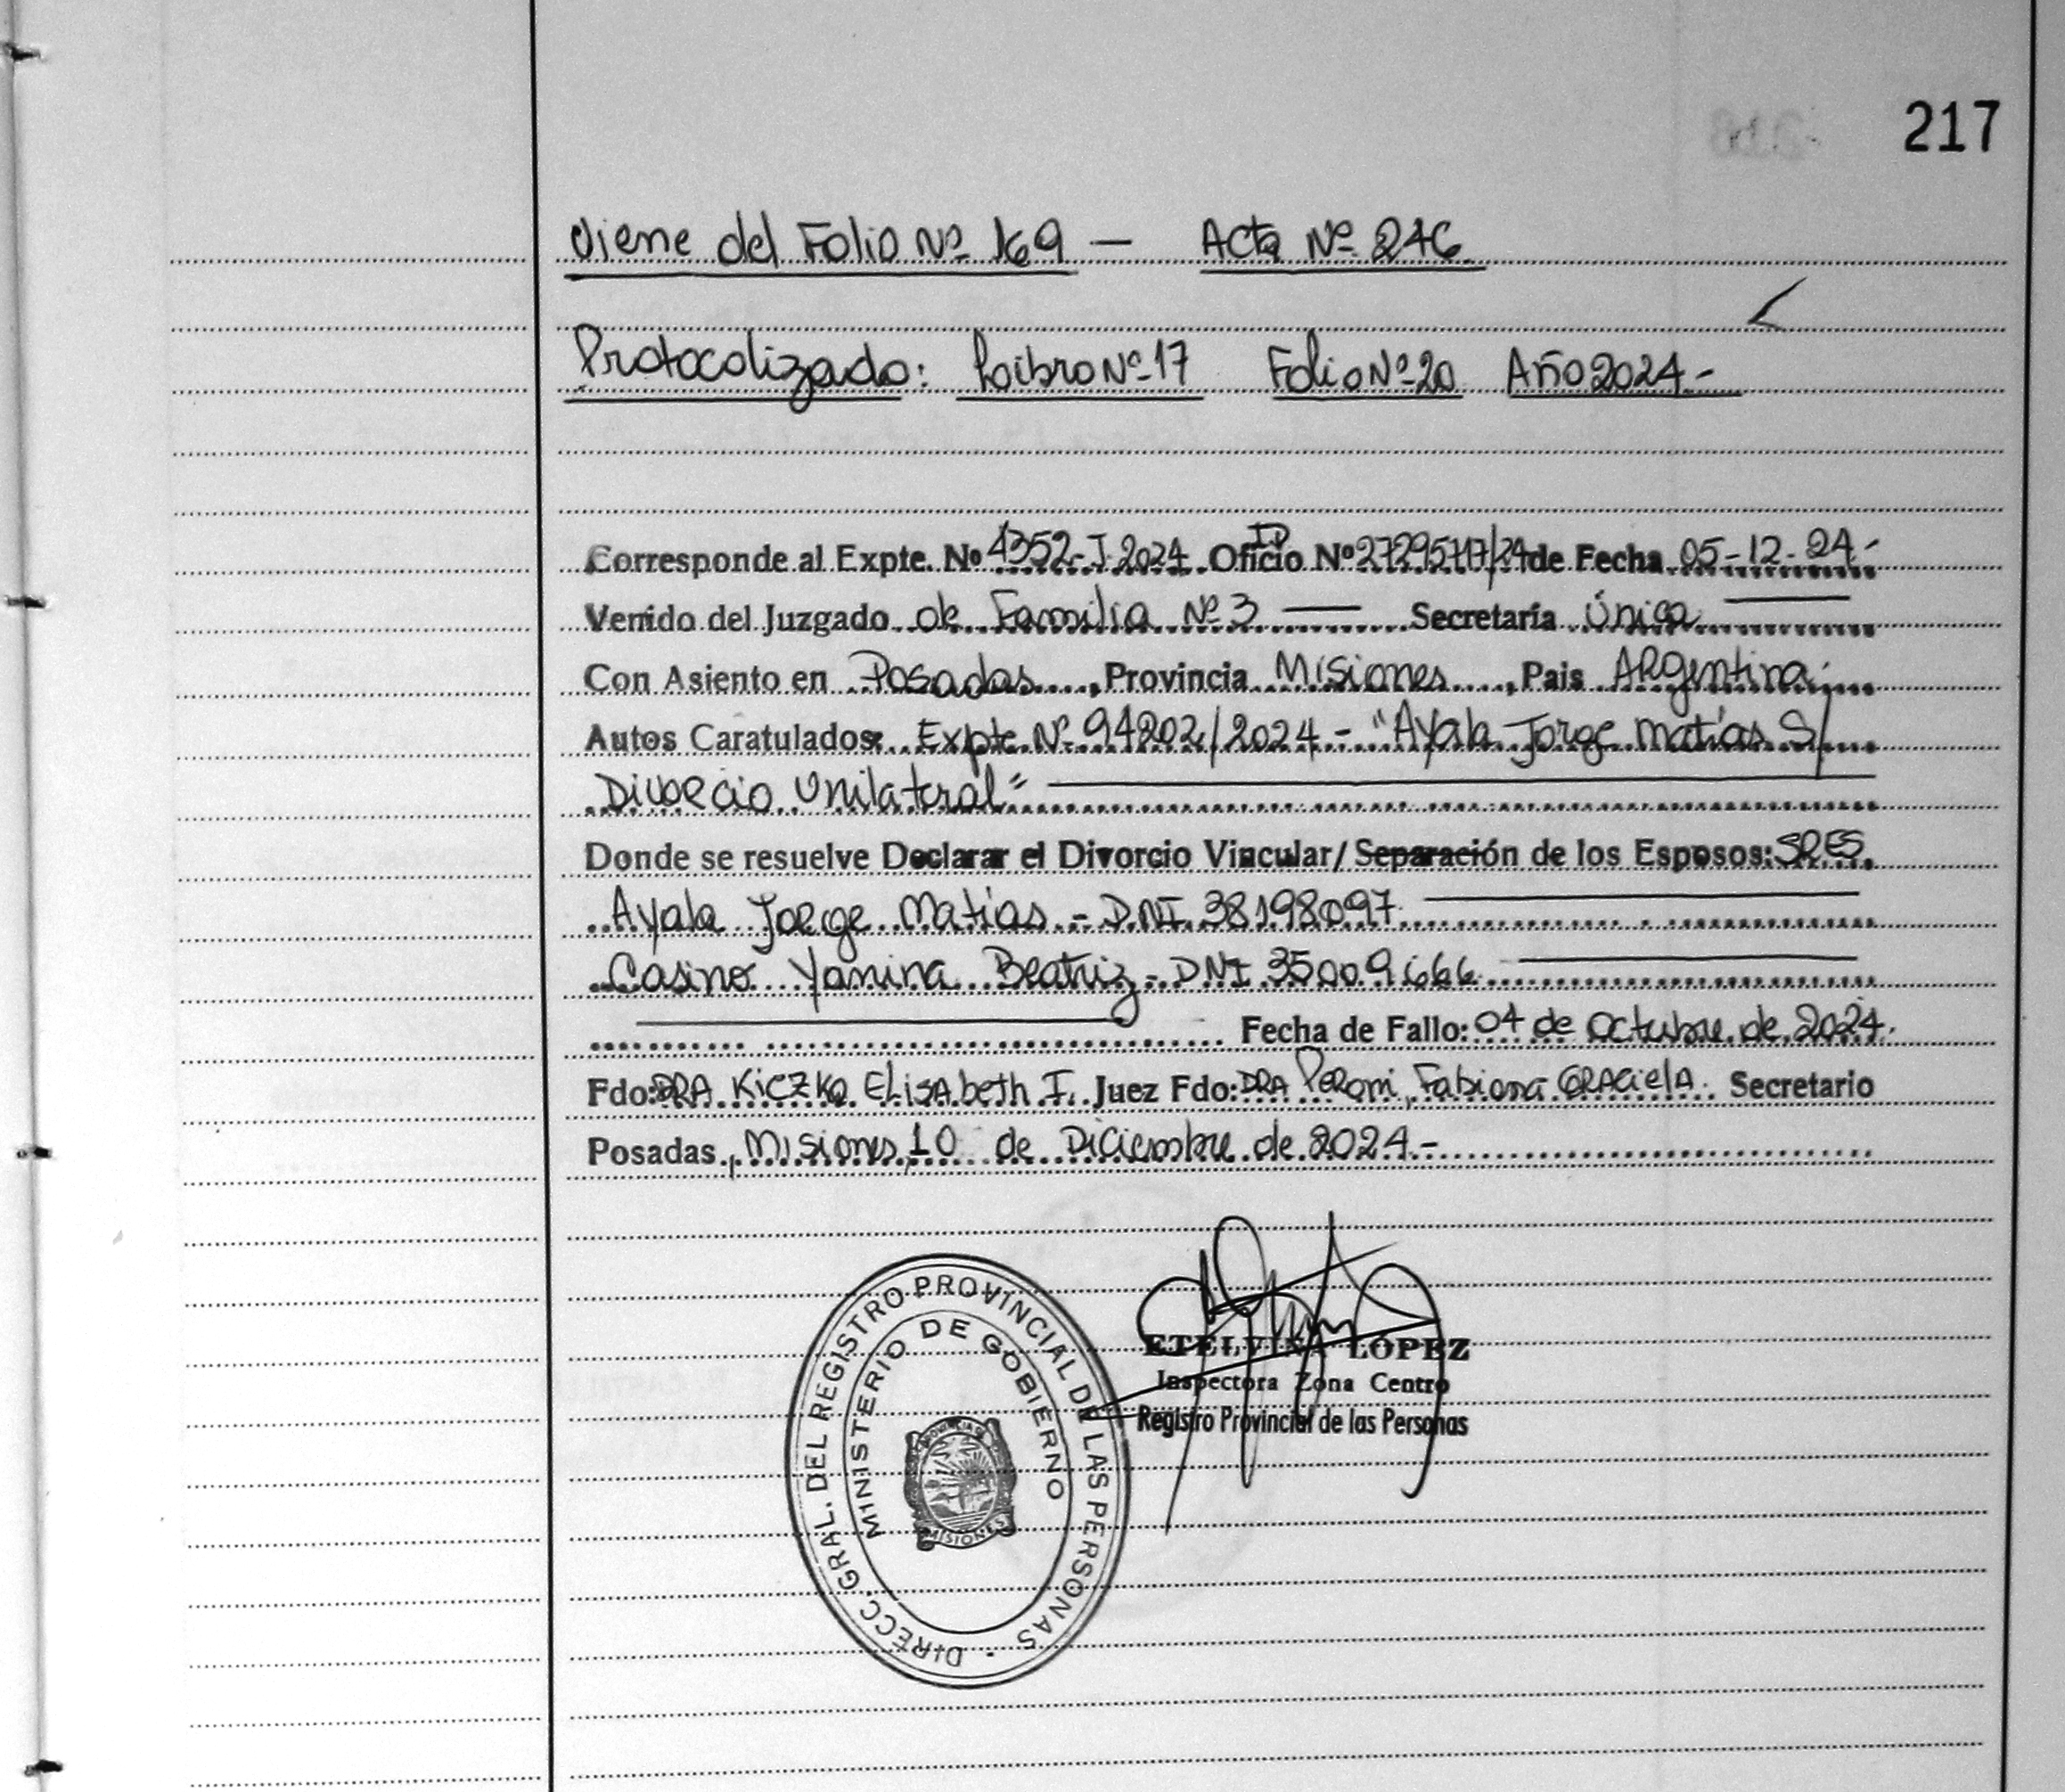 217
Viene del Folio Nº 169 — Acta Nº 246.
Protocolizado: Libro Nº 17 Folio Nº 20 Año 2024.-
Corresponde al Expte. Nº 4352-J-2024 Oficio ID Nº 27295717/24 de Fecha 05-12-24-
Venido del Juzgado de Familia Nº 3 — Secretaría Única
Con Asiento en Posadas, Provincia Misiones, Pais Argentina.
Autos Caratulados: Expte Nº 94202/2024 - "Ayala Jorge Matías S/
Divorcio Unilateral"
Donde se resuelve Declarar el Divorcio Vincular/Separación de los Esposos: SRES
Ayala Jorge Matías - DNI 38198097
Casino Yanina Beatriz - DNI 35009.666
Fecha de Fallo: 04 de Octubre de 2024.
Fdo: DRA Kiczka Elisabeth I. Juez Fdo: DRA Peroni, Fabiana Graciela. Secretario
Posadas, Misiones, 10 de Diciembre de 2024.-
DIRECC. GRAL. DEL REGISTRO PROVINCIAL DE LAS PERSONAS
MINISTERIO DE GOBIERNO
MISIONES
ETELVINA LÓPEZ
Inspectora Zona Centro
Registro Provincial de las Personas